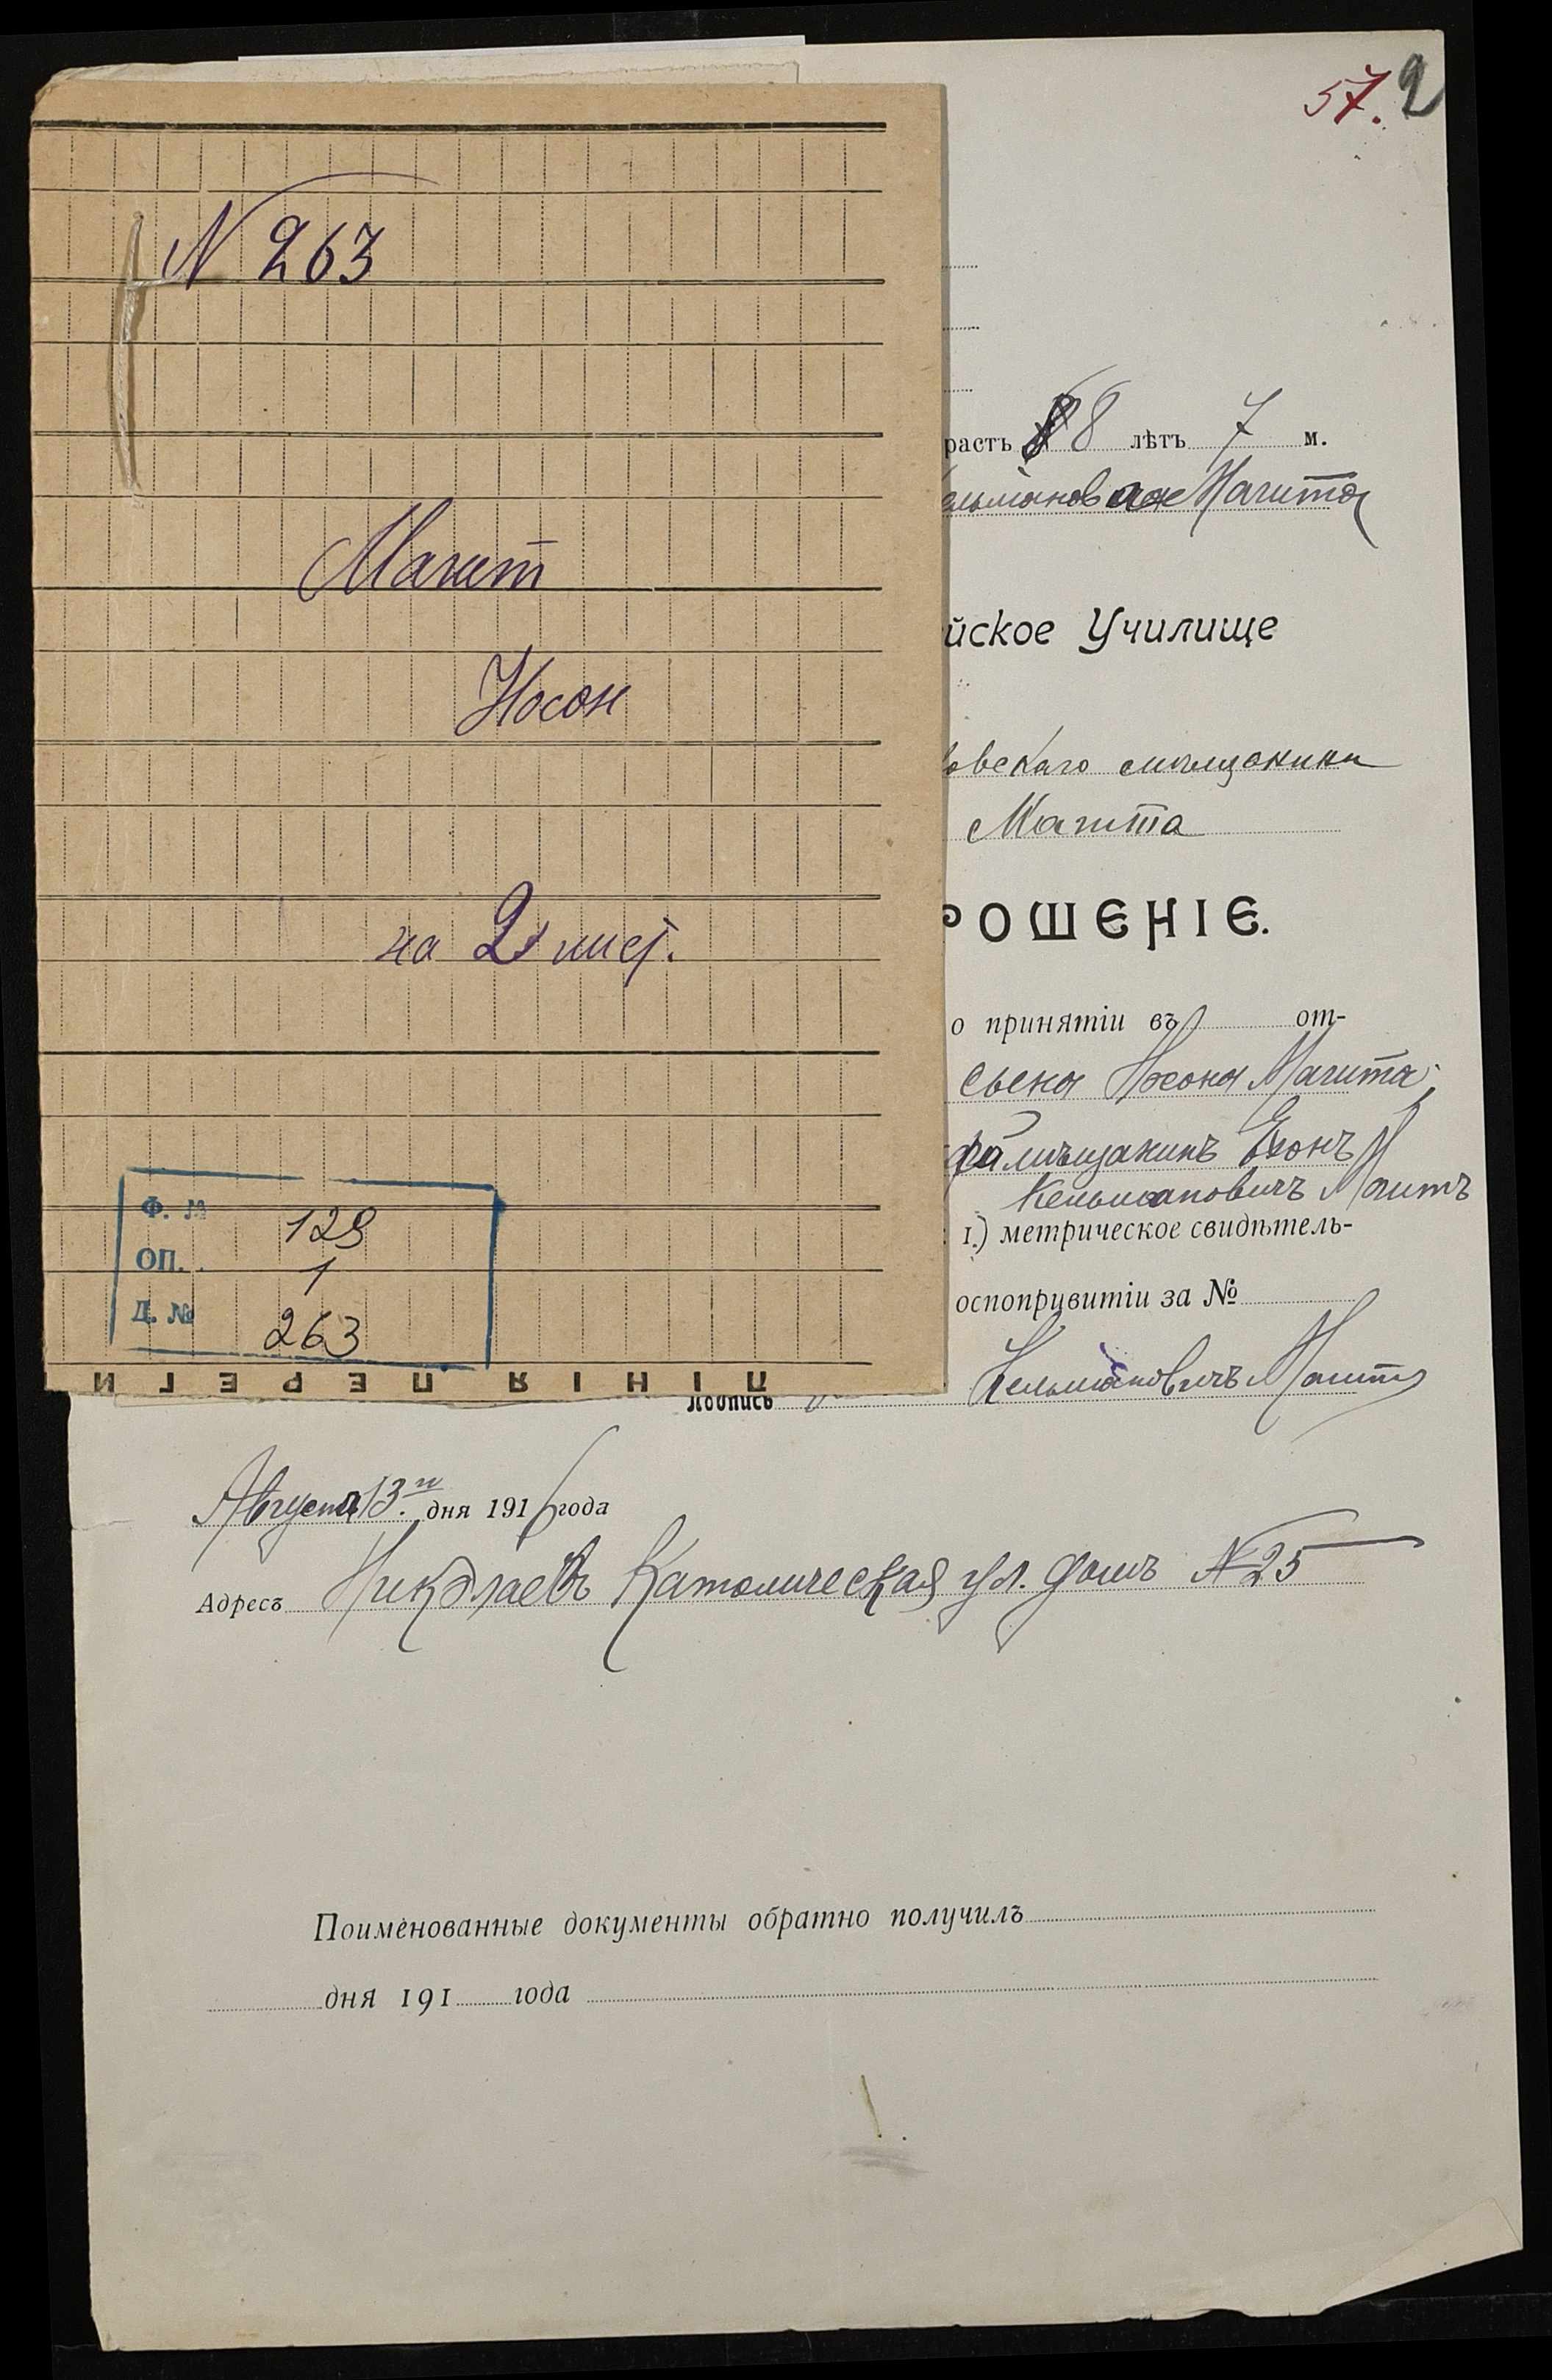 57. 2
N 263
Магит
Носон
на 2х лист.
Ф. №
129
ОП.
1
Д. №
263
ЛІНІЯ ПЕРЕГИ
расть 8 лѣтъ 7 м.
Магита
йское Училище
овскаго мѣщанина
Магита
РОШЕНІЕ.
о принятіи въ от-
сына Носона Магита,
мѣщанинъ
Кельмановичъ Магитъ
1.) метрическое свидѣтель-
оспопрививитіи за №
Подпись Кельмановичъ Магитъ
Августа 13.го дня 1916 года
Адресъ Николаевъ Католическая ул. домъ №25
Поименованные документы обратно получилъ
дня 191 года